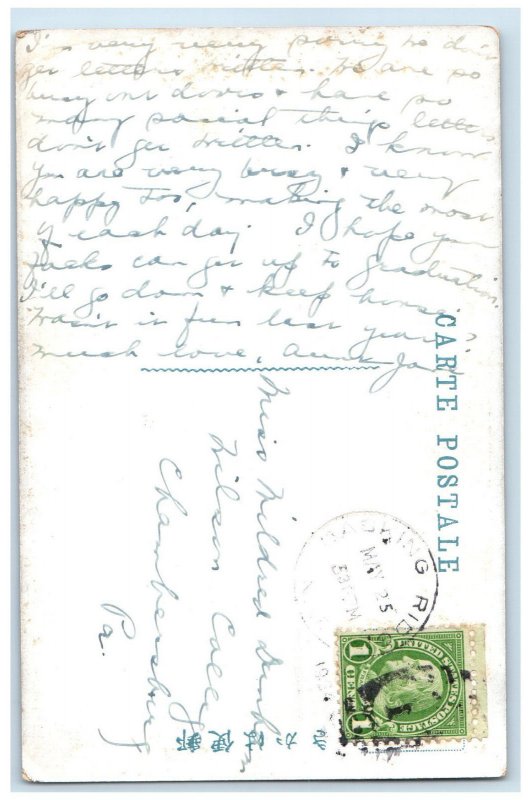 I'm very very sorry we don't
get letters written. We are so
busy out doors & have so
many social things letters
don't get written. I know
you are very busy & very
happy too, making the most
of each day. I hope your
folks can get up to graduation.
I'll go down & keep house.
Wasn't it fun last year?
Much love, Aunt Jane
CARTE POSTALE
Miss Mildred
Wilson College
Chambersburg
Pa.
BASKING RIDGE
MAY 25
UNITED STATES POSTAGE
1 CENT 1